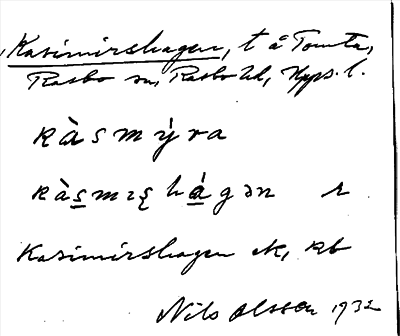 Kasimirshagen, t å Tomta,
Rasbo sn, Rasbo hd, Upps. l.
kàsmỳra
kàs̲mɪȿhá̲gən r
Kasimirshagen ek, kb
Nils Olsson 1932